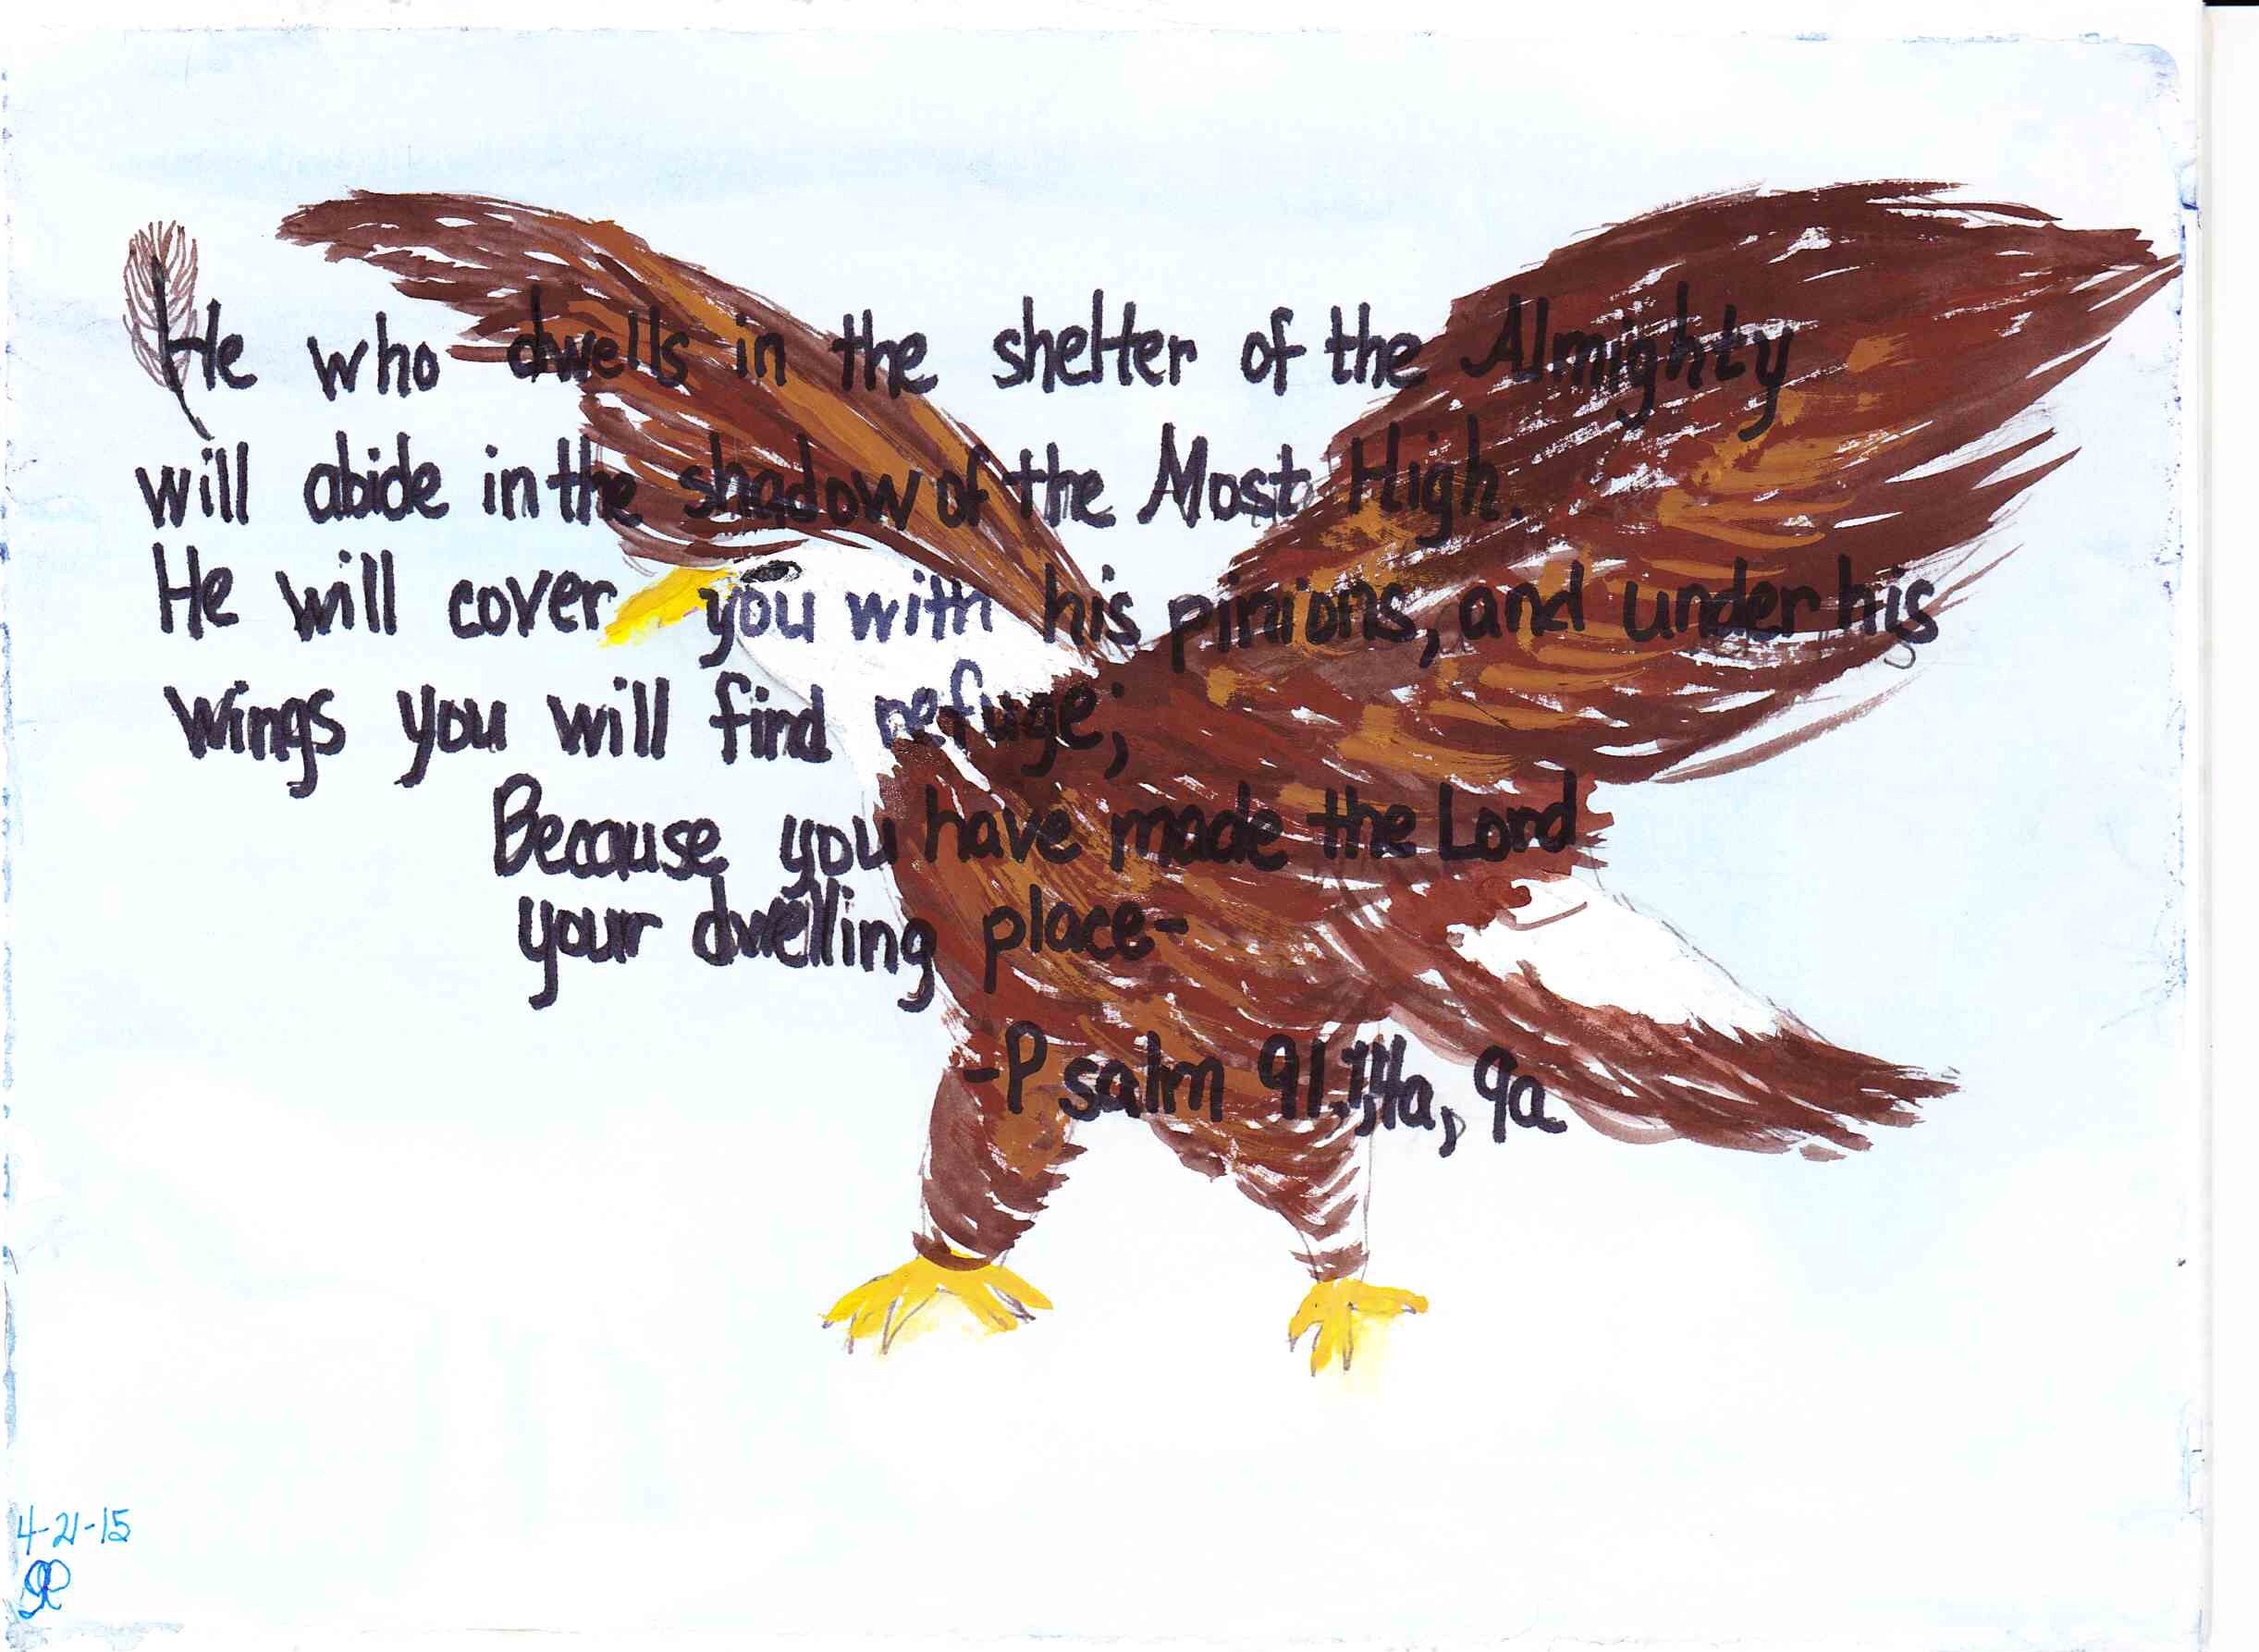 He who dwells in the shelter of the Almighty
will abide in the shadow of the Most High.
He will cover you with his pinions, and under his
wings you will find refuge;
Because you have made the Lord
your dwelling place-
-Psalm 91,1,4a, 9a
4-21-15